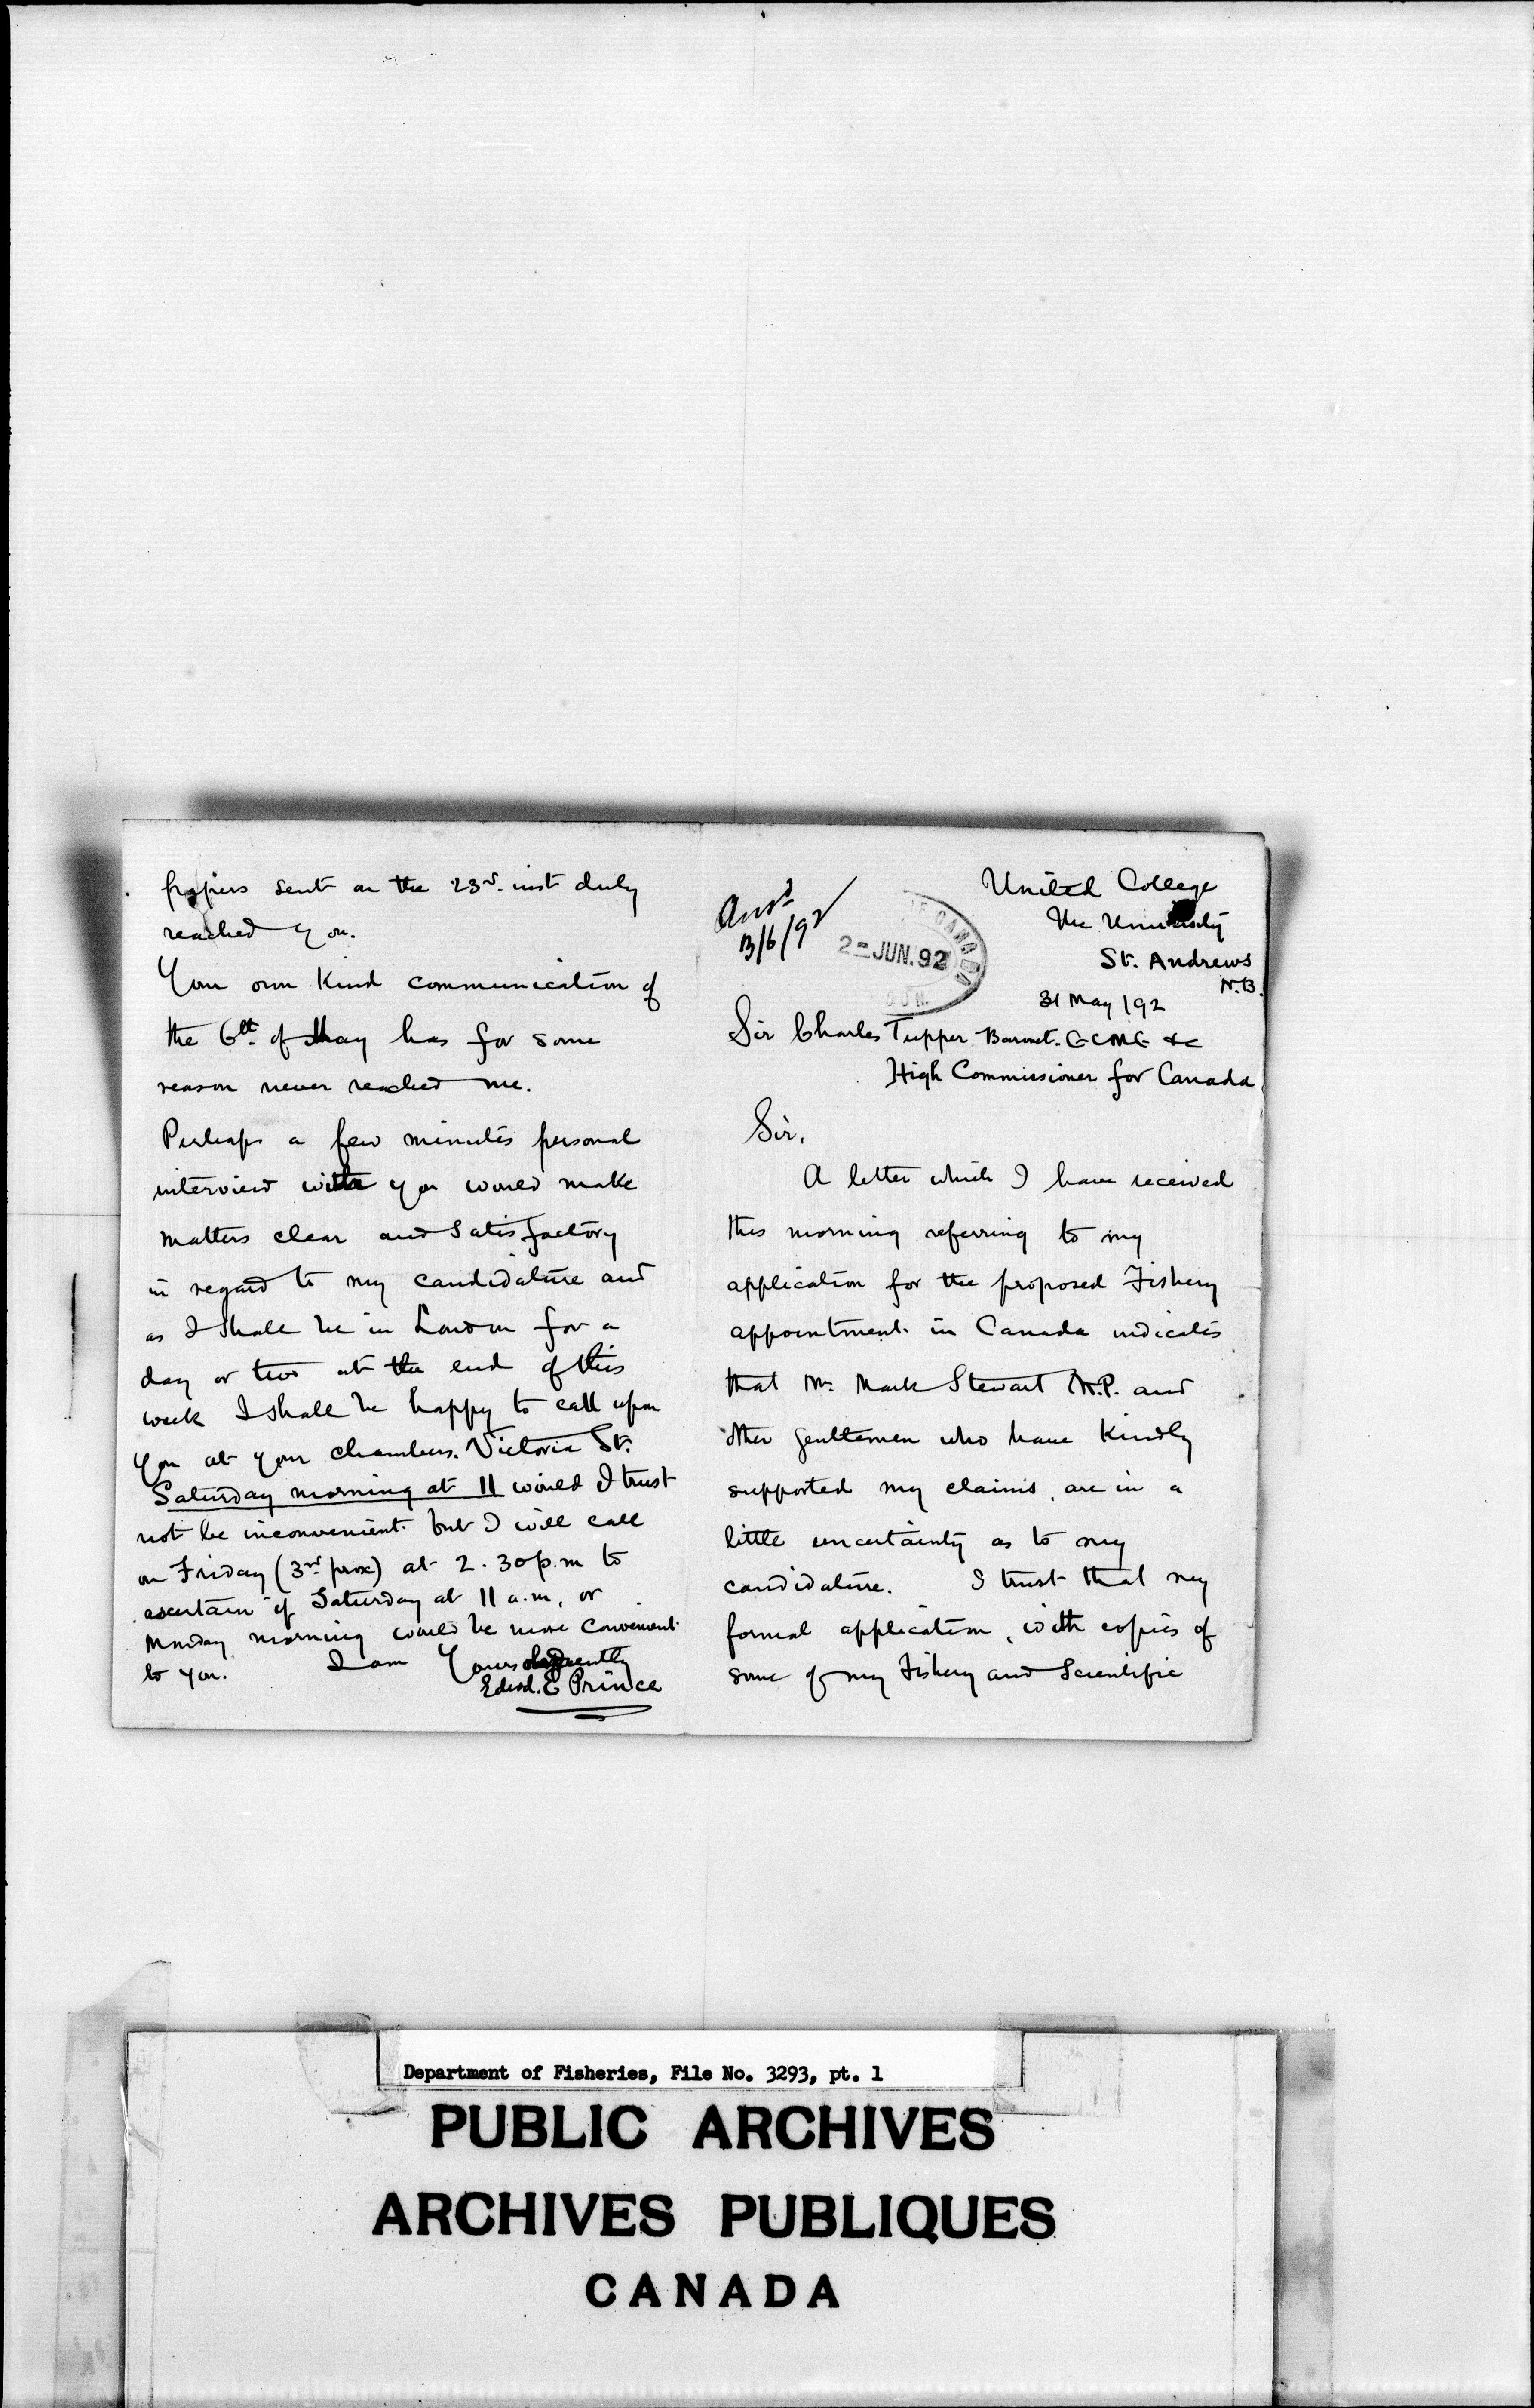 United College
The University
St. Andrews
N.B.
31 May /92
Ansd
13/6/92
CANADA
2 = JUN. 92
Sir Charles Tupper Baronet. GCMG &c
High Commissioner for Canada
Sir,
A letter which I have received
this morning referring to my
application for the proposed Fishery
appointment in Canada indicates
that Mr. Mark Stewart M.P. and
other gentlemen who have kindly
supported my claims, are in a
little uncertainty as to my
candidature. I trust that my
formal application, with copies of
some of my Fishery and Scientific
papers sent on the 23rd. inst duly
reached you.
Your own kind communication of
the 6th. of May has for some
reason never reached me.
Perhaps a few minutes personal
interview with you would make
matters clear and satisfactory
in regard to my candidature and
as I shall be in London for a
day or two at the end of this
week I shall be happy to call upon
you at your chambers. Victoria St.
Saturday morning at 11 would I trust
not be inconvenient but I will call
on Friday (3rd prox) at 2.30 p.m to
ascertain if Saturday at 11 a.m, or
Monday morning would be more convenient
to you. I am Yours obediently
Edwd. E Prince
Department of Fisheries, File No. 3293, pt. 1
PUBLIC ARCHIVES
ARCHIVES PUBLIQUES
CANADA